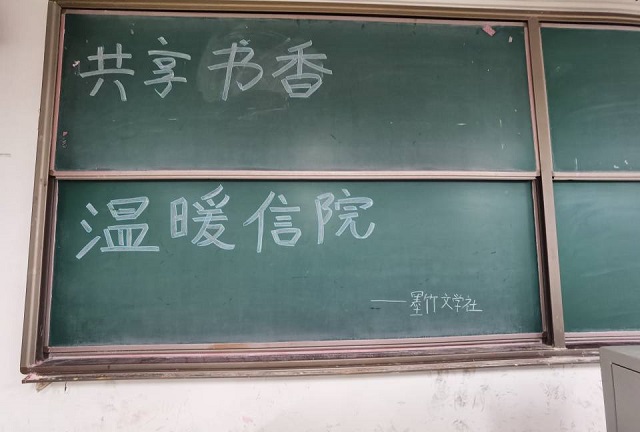 共享书香
温暖信院
——墨竹文学社